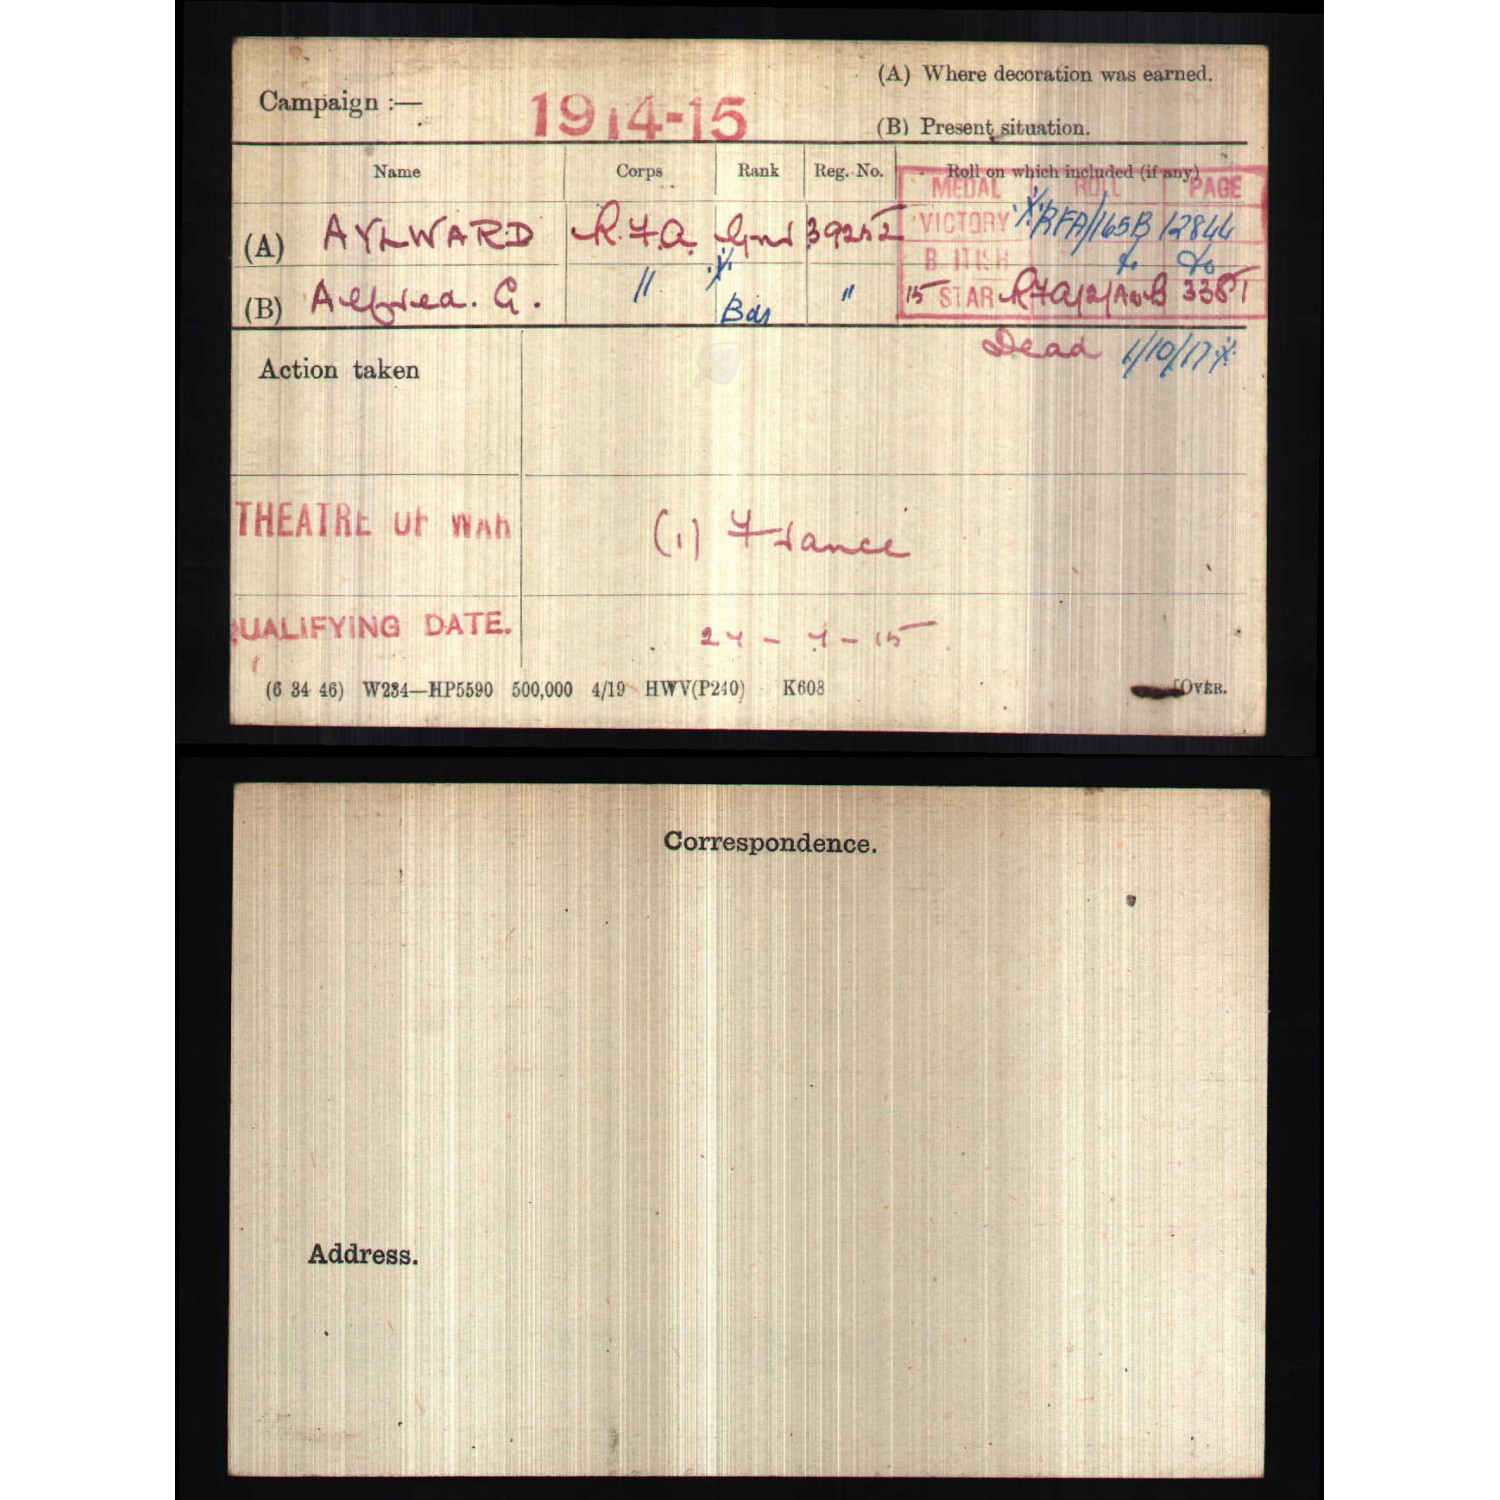 Campaign :— 1914-15 (A) Where decoration was earned.
(B) Present situation.
Name Corps Rank Reg. No. Roll on which included (if any)
MEDAL ROLL PAGE
(A) AYLWARD R.F.A. Gnr 39252 VICTORY RFA/165B 12844
BRITISH do do
(B) Alfred. G. " Bdr " 15 STAR RFA/2/AwB 3381
Dead 1/10/17
Action taken
THEATRE OF WAR (1) France
QUALIFYING DATE. 24-4-15
(6 34 46) W234—HP5590 500,000 4/19 HWV(P240) K608 [OVER.
Correspondence.
Address.